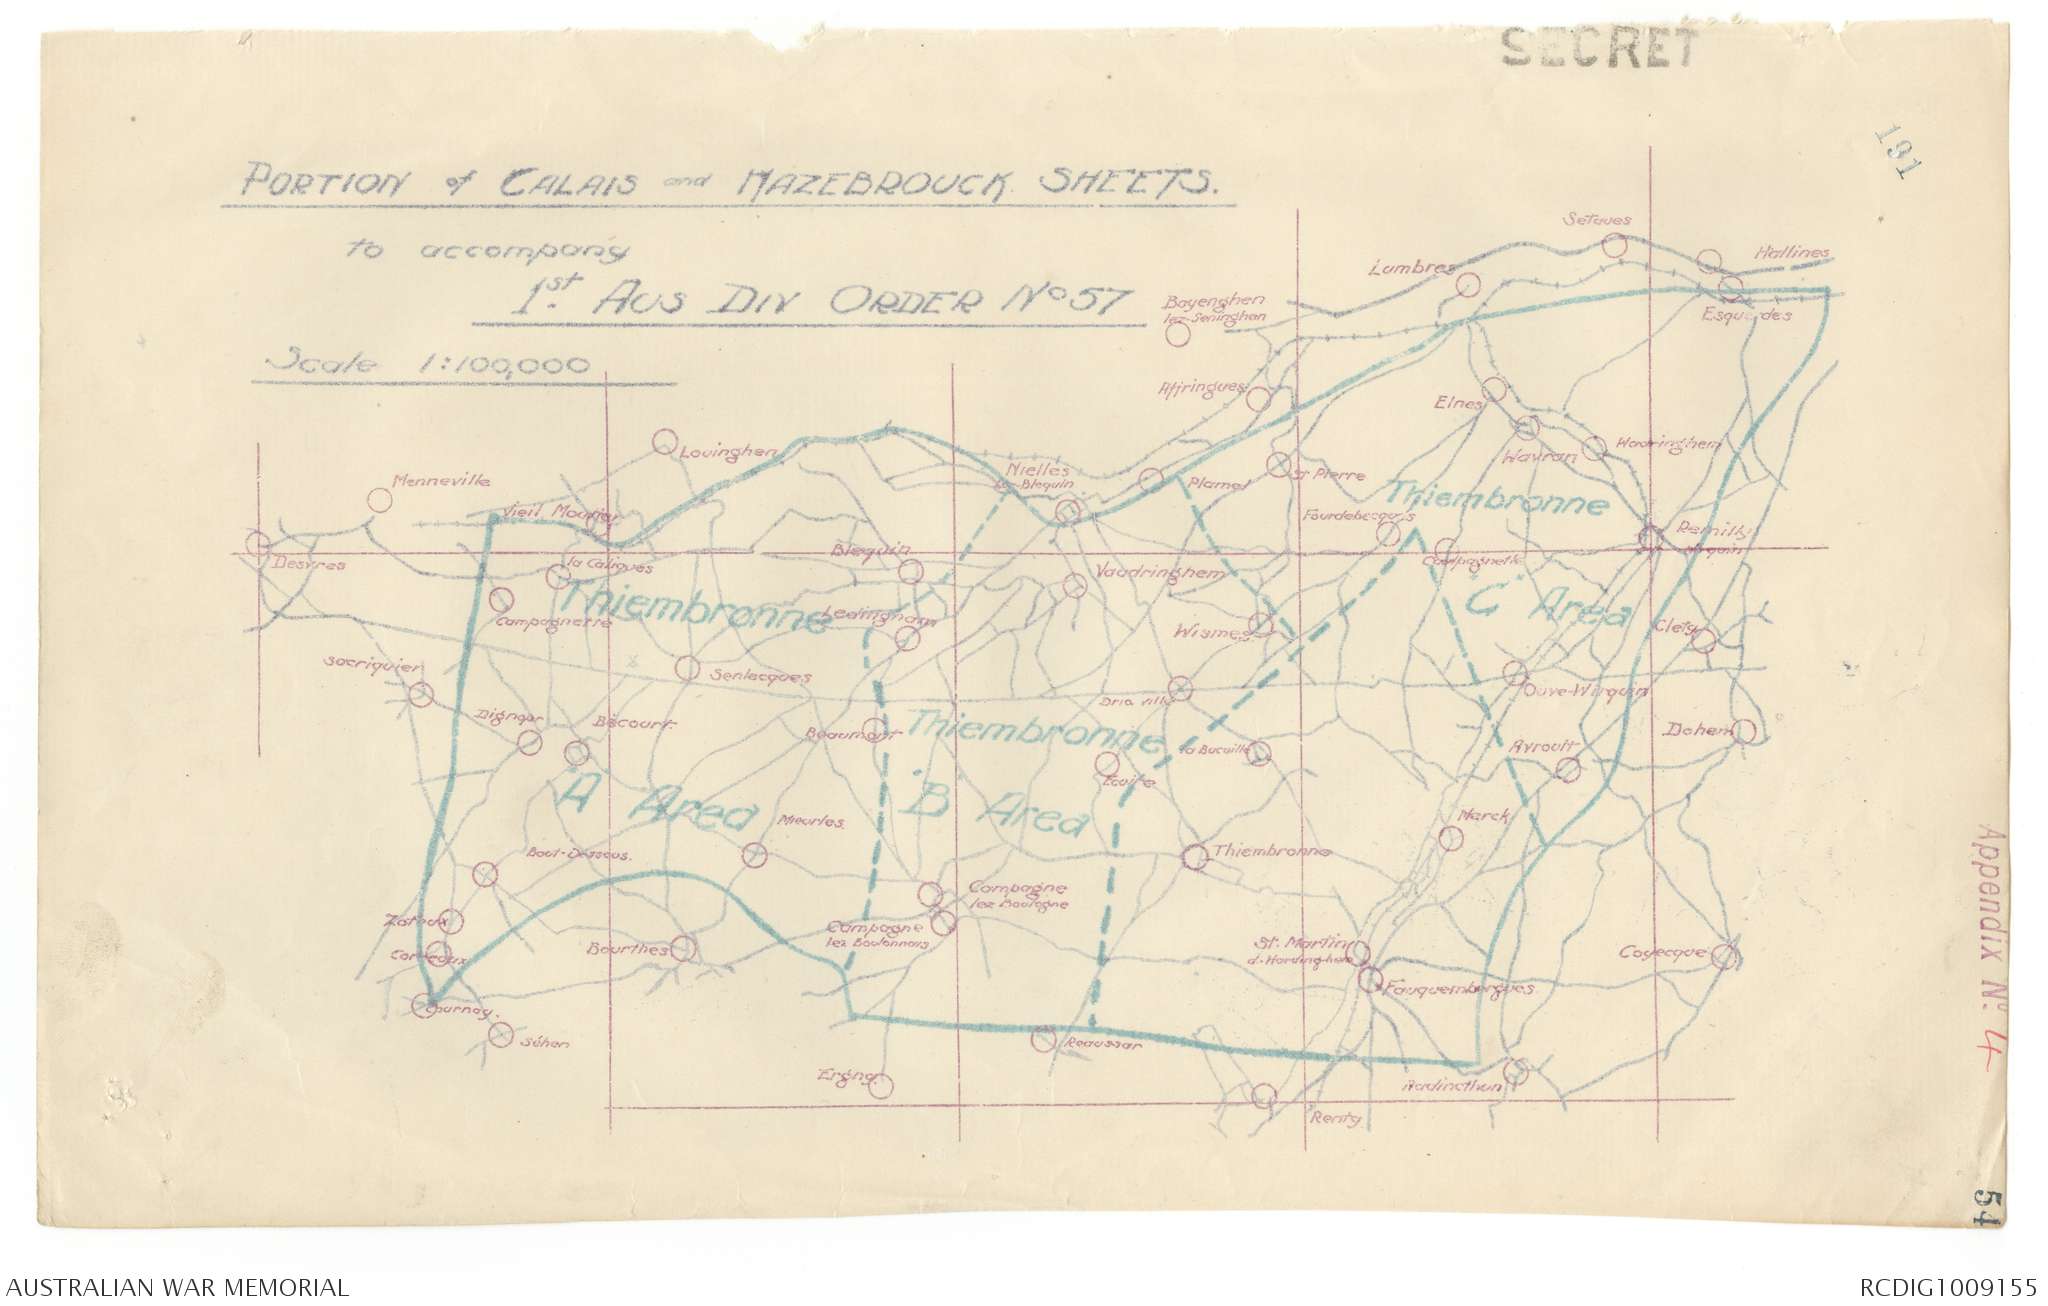 SECRET
191
PORTION of CALAIS and HAZEBROUCK SHEETS.
to accompany
1st Aus Div ORDER No 57
Scale 1:100,000
Setques
Hallines
Lumbres
Bayenghen
lez-Seninghen
Esquerdes
Affringues
Elnes
Wavran
Wavringhem
Lovinghen
Menneville
Nielles
lez-Blequin
St Pierre
Thiembronne
Vieil Moutier
Remilly
Desvres
la Caliques
Blequin
Vaudringhem
Campagnette
Thiembronne
Campagnette
Ledinghem
"C" Area
Wismes
Clety
Sacriquier
Senlecques
Ouve-Wirquin
Dignopr
Bécourt
Beaumont
Thiembronne
Dria ville
la Bucaille
Avroult
Dohem
Ecoire
"A" Area
"B" Area
Mieurles
Marck
Bout-Dessous.
Thiembronne
Campagne
lez Boulogne
Zoteux
Campagne
lez Boulonnais
Bourthes
St. Martin
d-Hardinghem
Coyecque
Fauquembergues
Appendix No. 4
Tournay.
Séhen
Rouussar
Ergny.
Radincthun
Renty
54
AUSTRALIAN WAR MEMORIAL
RCDIG1009155